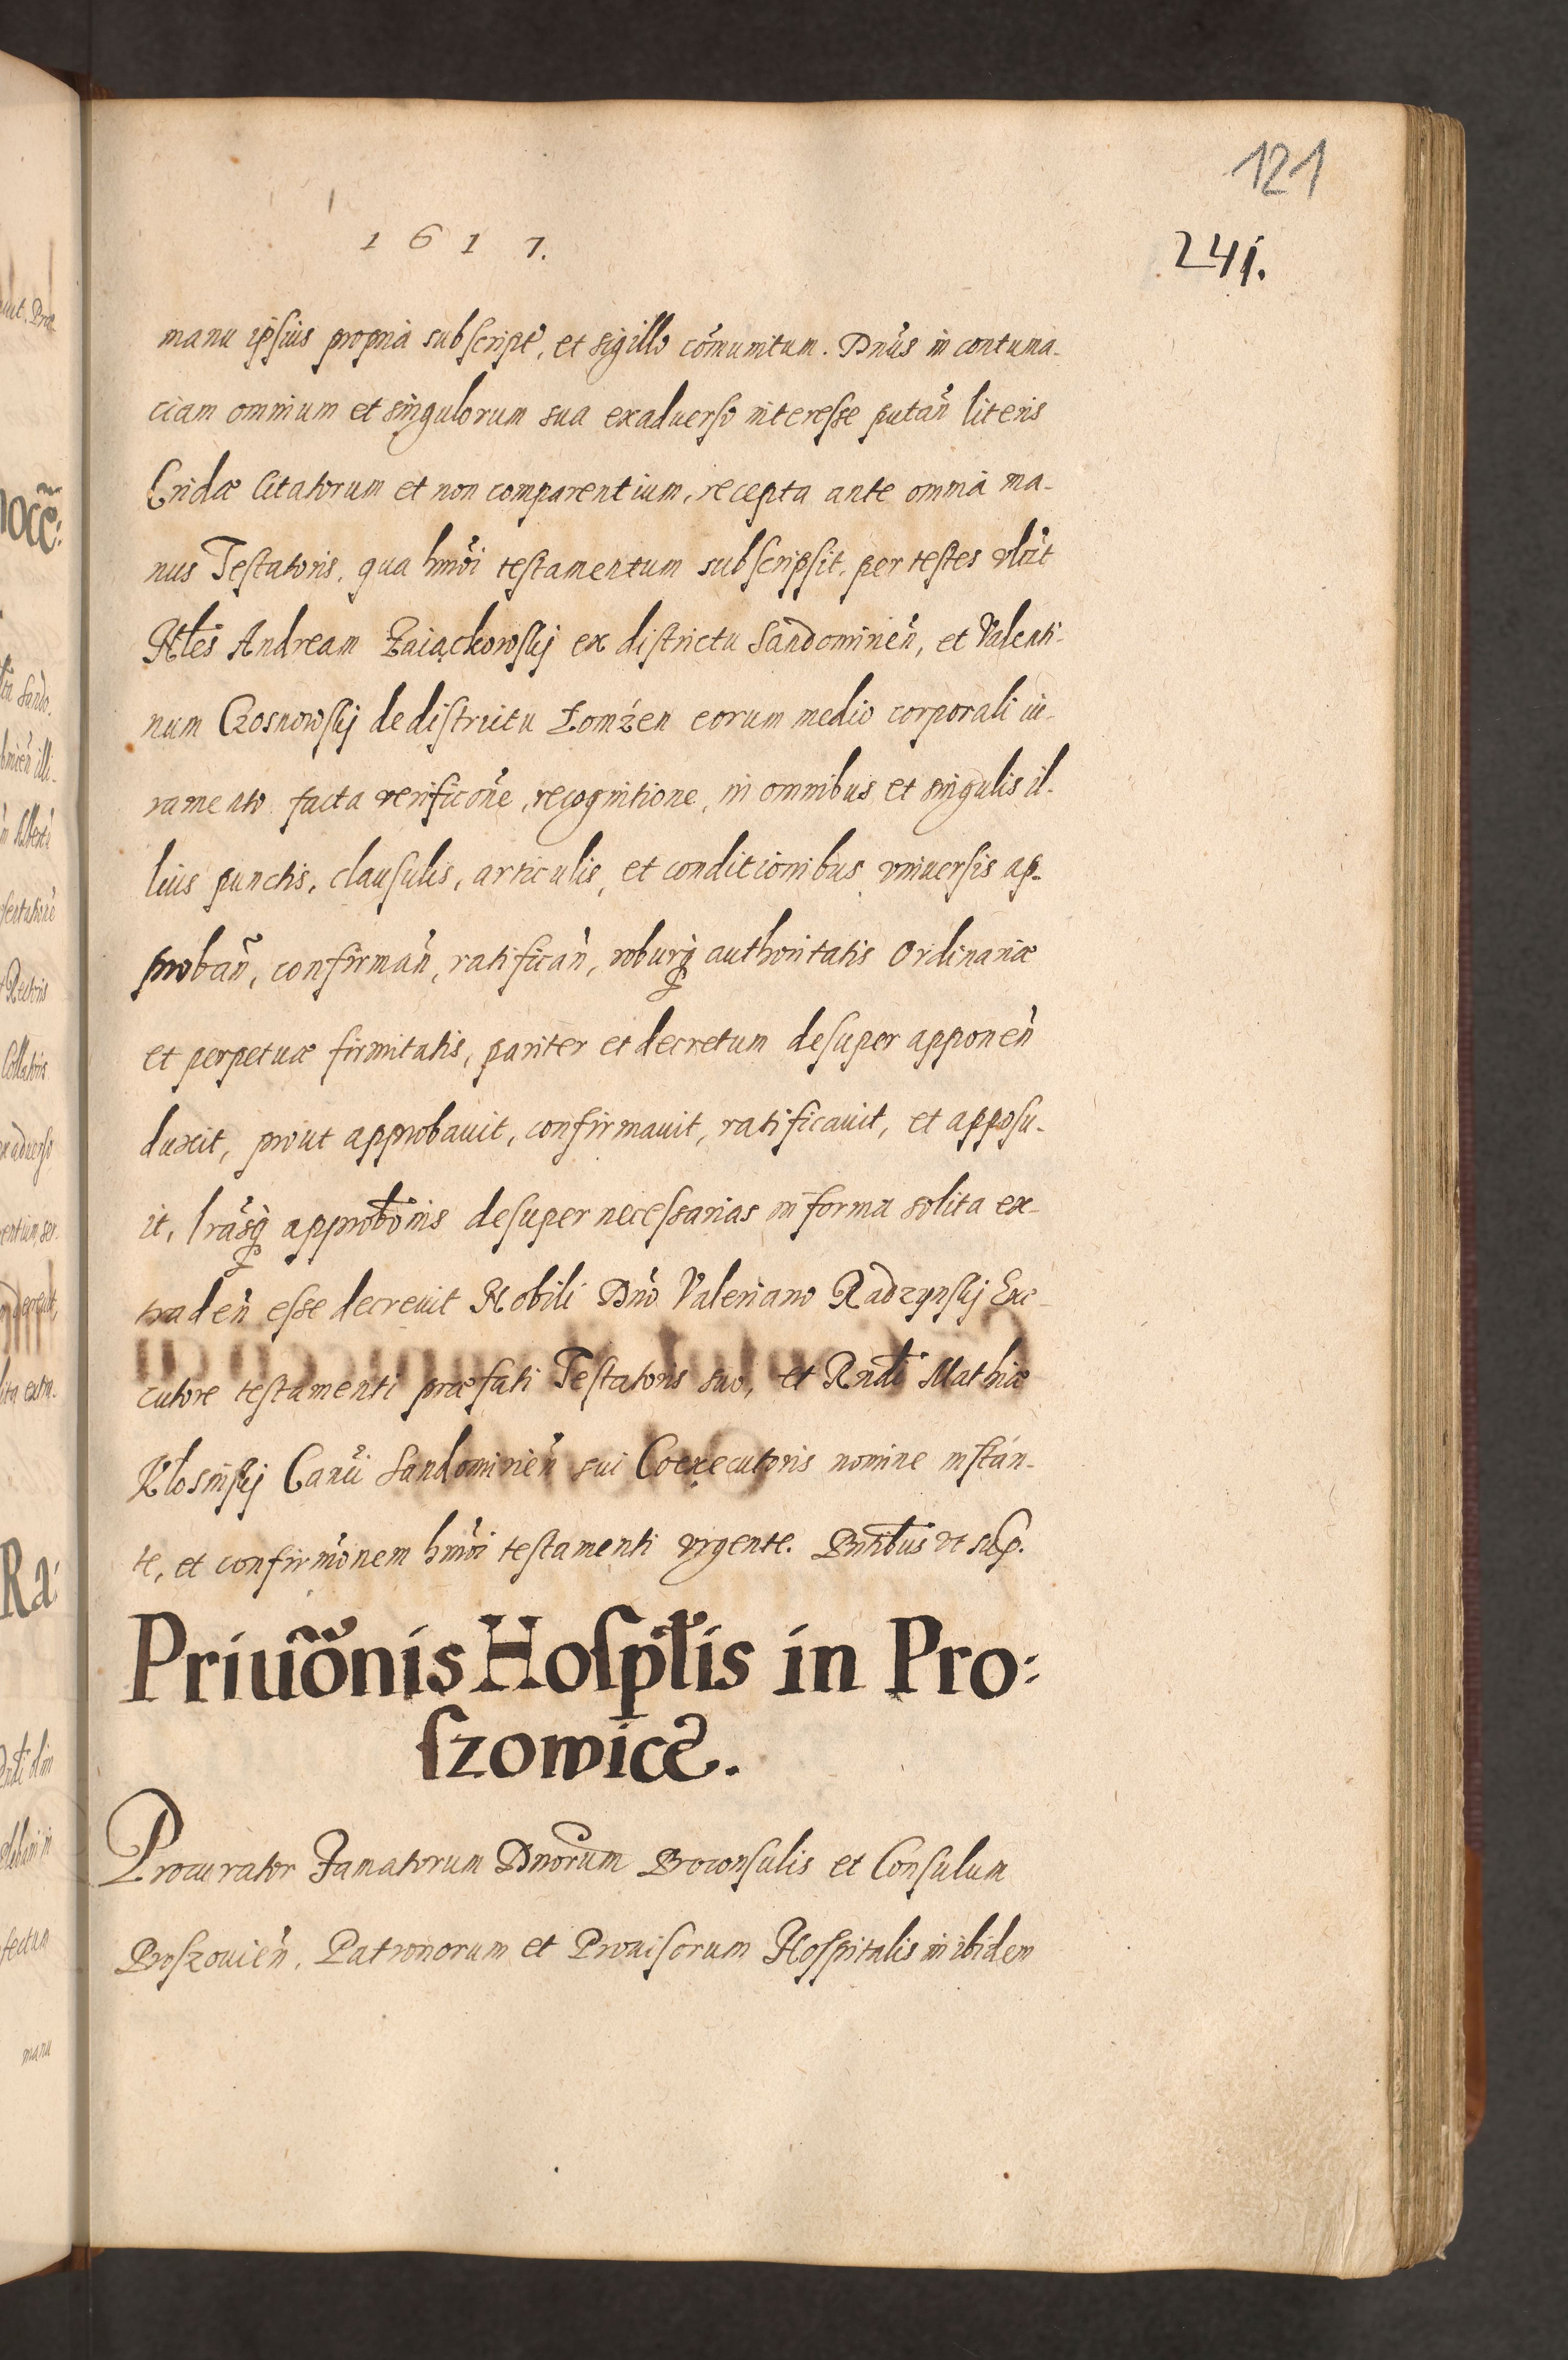 121
1617.
241.
manu ipsius propria subscript̃, et sigillo com̃unitum. Dnũs in contuma-
ciam omnium et singulorum sua exaduerso interesse putan̄ literis
Cridæ Citatorum et non comparentium, recepta ante omnia ma-
nus Testatoris, qua hmõi testamentum subscripsit, per testes vlt̃
Nbles Andream Zaiączkowskj ex districtu Sandomirien̄, et Valenti-
num Czosnowskj de districtu Łomżen eorum medio corporali iu-
ramento facta verificõne, recognitione, in omnibus et singulis il-
lius punctis, clausulis, articulis, et conditionibus vniuersis ap-
proban̄, confirman̄, ratifican̄, roburq̨ authoritatis Ordinariæ
et perpetuæ firmitatis, pariter et decretum desuper apponen̄
duxit, prout approbauit, confirmauit, ratificauit, et apposu-
it, lrãsq̨ approbõnis desuper necessarias in forma solita ex-
traden̄ esse decreuit Nobili Dnõ Valeriano Radzynskj Exe-
cutore testamenti præfati Testatoris suo, et Rndi Mathiæ
Kłosinskj Canci Sandomirien̄ sui Coexecutoris nomine instan-
te, et confirmõnem hmõi testamenti vrgente. Pntibus vt sup.
Priuõnis Hosptlis in Pro:
szowice.
Procurator Famatorum Dnorum Proconsulis et Consulum
Proszouien̄, Patronorum et Prouisorum Hospitalis in ibidem